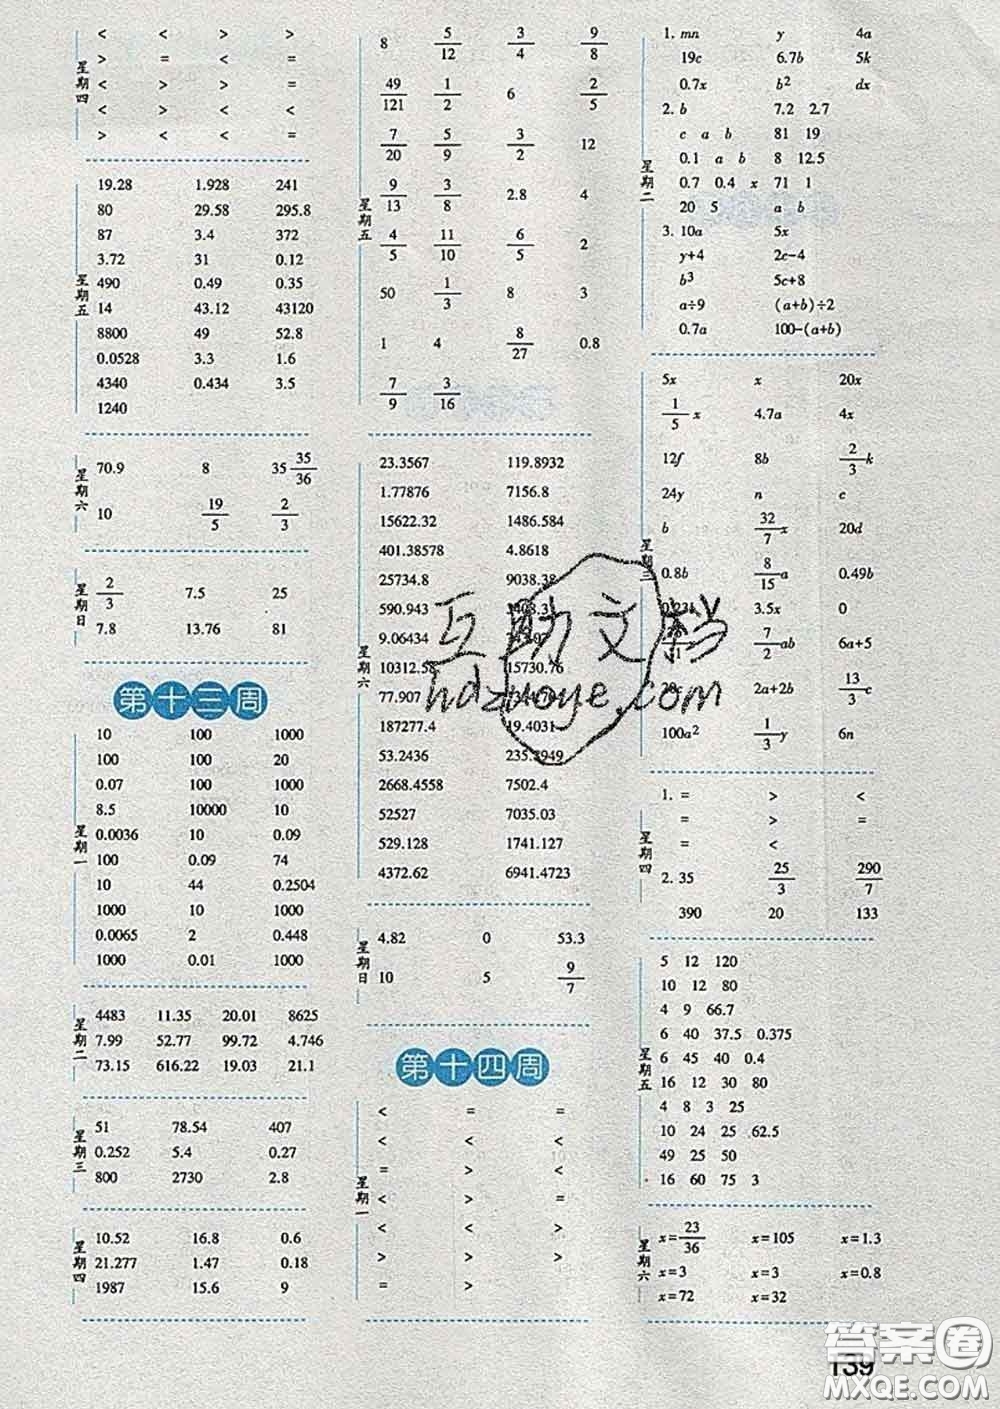 星期四
< < > >
> = < =
< > > =
< > < <
> < < =
星期五
19.28 1.928 241
80 29.58 295.8
87 3.4 372
3.72 31 0.12
490 0.49 0.35
14 43.12 43120
8800 49 52.8
0.0528 3.3 1.6
4340 0.434 3.5
1240
星期六
70.9 8 35 35/36
10 19/5 2/3
星期日
2/3 7.5 25
7.8 13.76 81
第十三周
星期一
10 100 1000
100 100 20
0.07 100 1000
8.5 10000 10
0.0036 10 0.09
100 0.09 74
10 44 0.2504
1000 10 1000
0.0065 2 0.448
1000 0.01 1000
星期二
4483 11.35 20.01 8625
7.99 52.77 99.72 4.746
73.15 616.22 19.03 21.1
星期三
51 78.54 407
0.252 5.4 0.27
800 2730 2.8
星期四
10.52 16.8 0.6
21.277 1.47 0.18
1987 15.6 9
星期五
8 5/12 3/4 9/8
49/121 1/2 6 2/5
7/20 5/9 3/2 12
9/13 3/8 2.8 4
4/5 11/10 6/5 2
50 1/3 8 3
1 4 8/27 0.8
7/9 3/16
星期六
23.3567 119.8932
1.77876 7156.8
15622.32 1486.584
401.38578 4.8618
25734.8 9038.38
590.943
9.06434
10312.58 15730.76
77.907
187277.4 19.4031
53.2436 235.2949
2668.4558 7502.4
52527 7035.03
529.128 1741.127
4372.62 6941.4723
星期日
4.82 0 53.3
10 5 9/7
第十四周
星期一
< = =
< < <
= > <
< > =
< < >
> > >
= >
1. mn y 4a
19c 6.7b 5k
0.7x b² dx
星期二
2. b 7.2 2.7
c a b 81 19
0.1 a b 8 12.5
0.7 0.4 x 71 1
20 5 a b
3. 10a 5x
y+4 2c-4
b³ 5c+8
a÷9 (a+b)÷2
0.7a 100-(a+b)
星期三
5x x 20x
1/5 x 4.7a 4x
12f 8b 2/3 k
24y n c
b 32/7 x 20d
0.8b 8/15 a 0.49b
3.5x 0
7/2 ab 6a+5
2a+2b 13/3 c
100a² 1/3 y 6n
星期四
1. = > <
= > =
= <
2. 35 25/3 290/7
390 20 133
星期五
5 12 120
10 12 80
4 9 66.7
6 40 37.5 0.375
6 45 40 0.4
16 12 30 80
4 8 3 25
10 24 25 62.5
49 25 50
16 60 75 3
星期六
x=23/36 x=105 x=1.3
x=3 x=3 x=0.8
x=72 x=32
互助文档
hdzuoye.com
答案圈
MXQE.COM
139